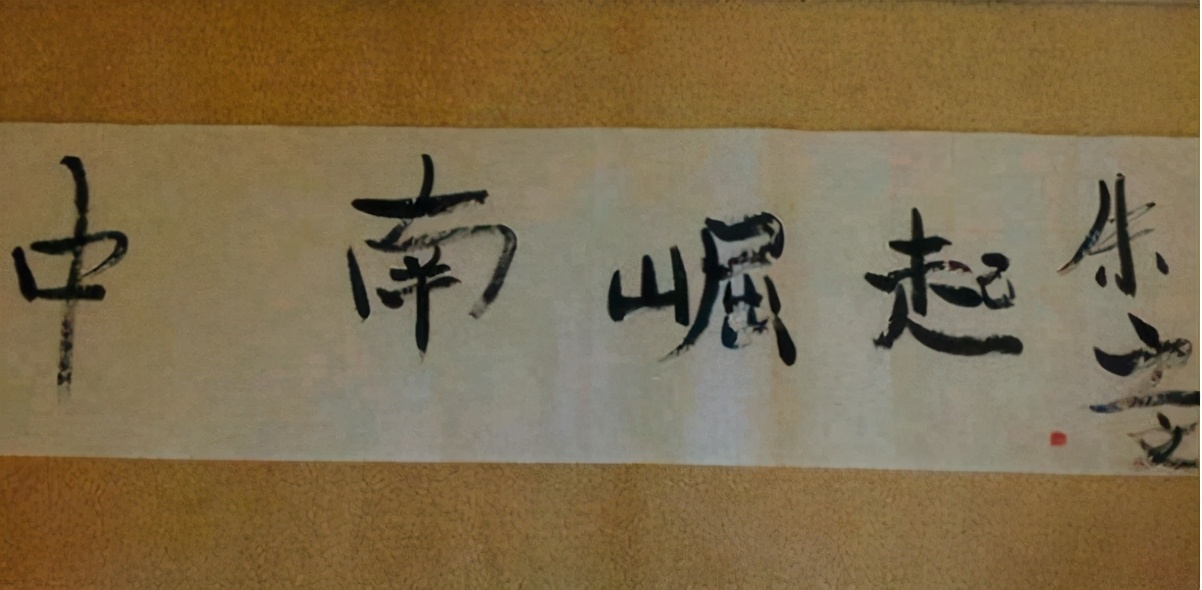 中南崛起
朱